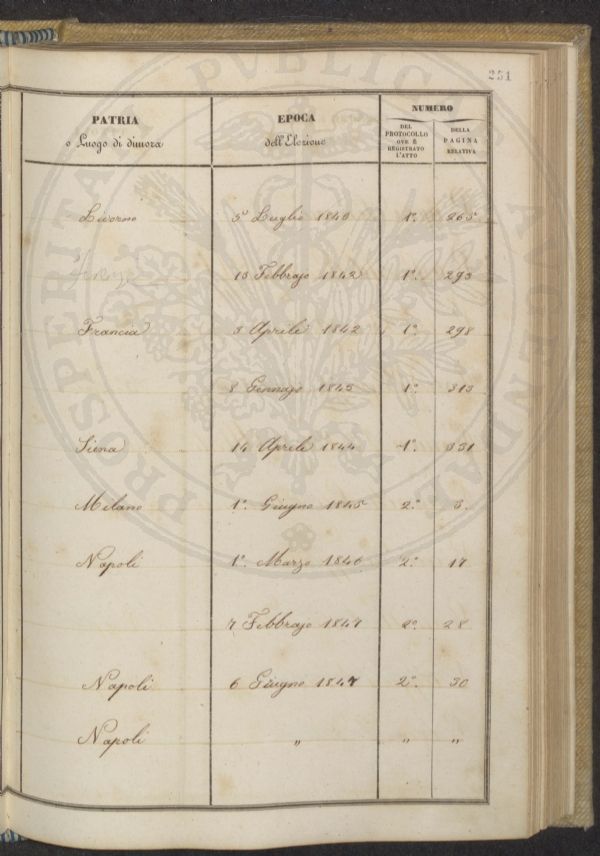 251
PATRIA
o Luogo di dimora
EPOCA
dell'Elezione
NUMERO
DEL
PROTOCOLLO
OVE È
REGISTRATO
L'ATTO
DELLA
PAGINA
RELATIVA
Livorno 5 Luglio 1840 1º. 265
Febbrajo 1842 1º. 293
Francia 3 Aprile 1842 1º. 298
8 Gennajo 1843 1º. 313
Siena 14 Aprile 1844 1º. 331
Milano 1º. Giugno 1845 2º. 3.
Napoli 1º. Marzo 1846 2º. 17
7 Febbrajo 1847 2º. 28
Napoli 6 Giugno 1847 2º. 30
Napoli " " "
PROSPERITATI PVBLICAE AVGENDAE